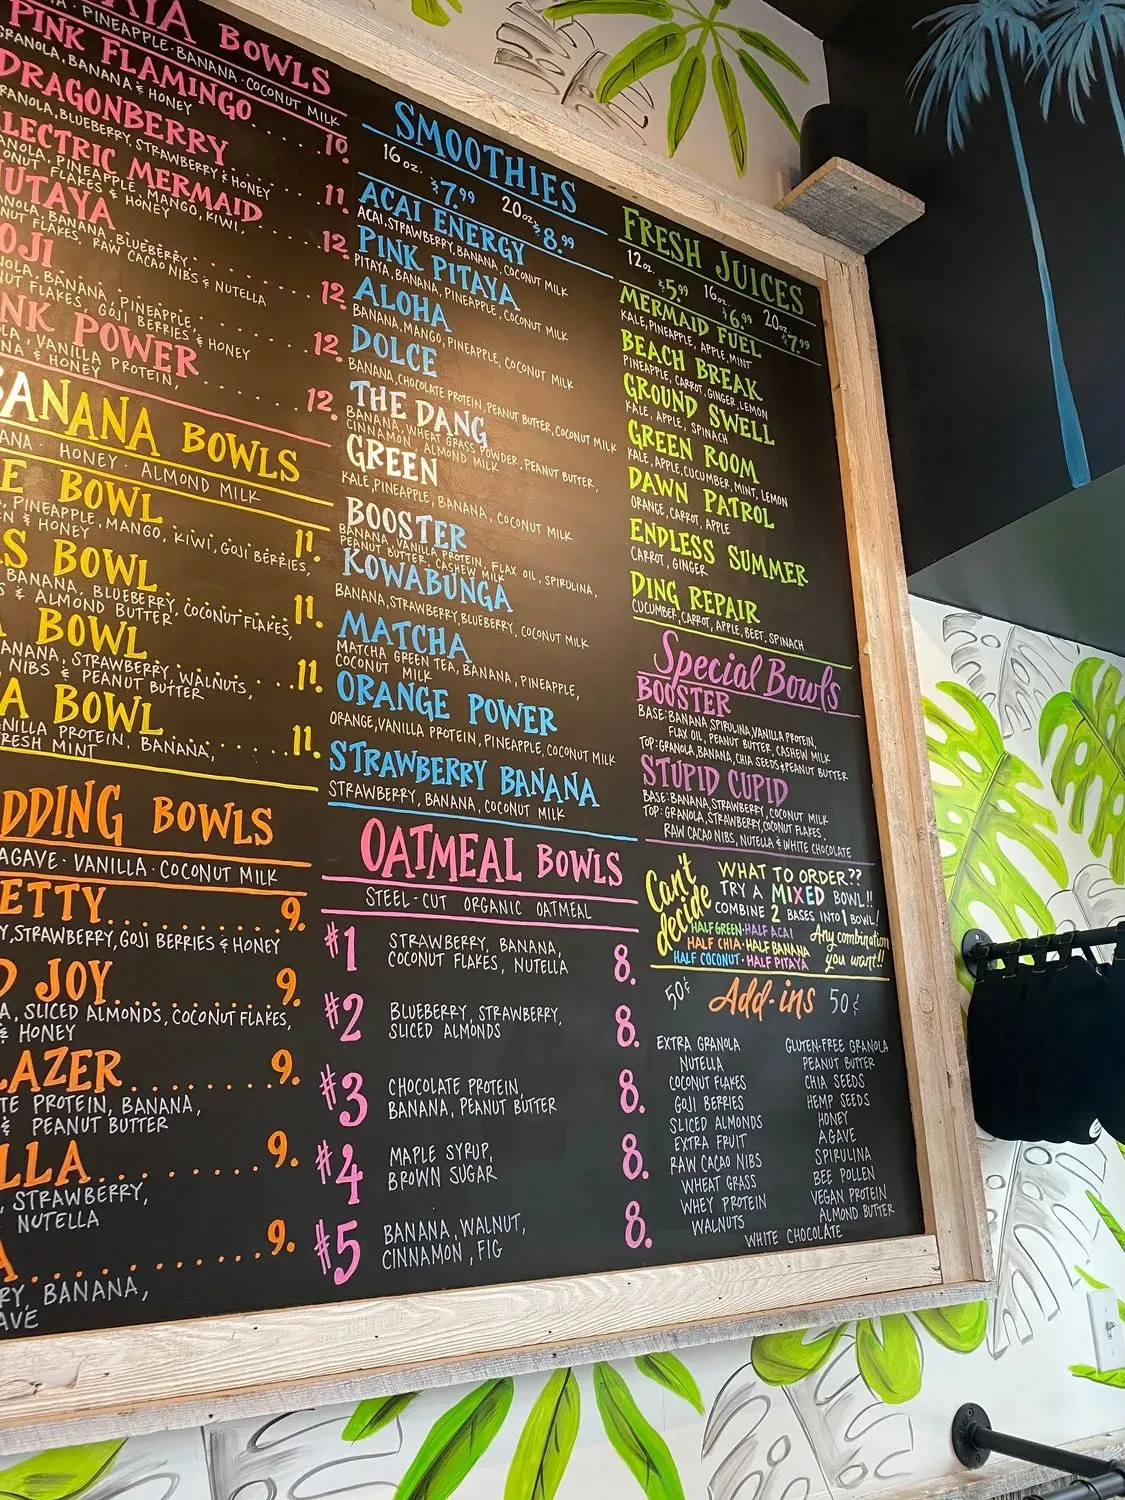 BOWLS
PINEAPPLE · BANANA · COCONUT MILK
PINK FLAMINGO
GRANOLA, BANANA & HONEY
10.
DRAGONBERRY
GRANOLA, BLUEBERRY, STRAWBERRY & HONEY
11.
ELECTRIC MERMAID
PINEAPPLE, MANGO, KIWI,
FLAKES & HONEY
12.
NUTAYA
BANANA, BLUEBERRY
FLAKES, RAW CACAO NIBS & NUTELLA
12.
OJI
BANANA, PINEAPPLE,
FLAKES, GOJI BERRIES & HONEY
12.
POWER
VANILLA PROTEIN,
& HONEY
12.
BANANA BOWLS
HONEY · ALMOND MILK
E BOWL
PINEAPPLE, MANGO, KIWI, GOJI BERRIES,
& HONEY
11.
S BOWL
BANANA, BLUEBERRY, COCONUT FLAKES,
& ALMOND BUTTER
11.
BOWL
BANANA, STRAWBERRY, WALNUTS,
NIBS & PEANUT BUTTER
11.
A BOWL
PROTEIN, BANANA,
FRESH MINT
11.
DDING BOWLS
AGAVE · VANILLA · COCONUT MILK
ETTY
9.
STRAWBERRY, GOJI BERRIES & HONEY
JOY
9.
SLICED ALMONDS, COCONUT FLAKES,
& HONEY
LAZER
9.
PROTEIN, BANANA,
& PEANUT BUTTER
LLA
9.
STRAWBERRY,
NUTELLA
A
9.
BANANA,
SMOOTHIES
16 oz. $7.99 20 oz. $8.99
ACAI ENERGY
ACAI, STRAWBERRY, BANANA, COCONUT MILK
PINK PITAYA
PITAYA, BANANA, PINEAPPLE, COCONUT MILK
ALOHA
BANANA, MANGO, PINEAPPLE, COCONUT MILK
DOLCE
BANANA, CHOCOLATE PROTEIN, PEANUT BUTTER, COCONUT MILK
THE DANG
BANANA, WHEAT GRASS POWDER, PEANUT BUTTER,
CINNAMON, ALMOND MILK
GREEN
KALE, PINEAPPLE, BANANA, COCONUT MILK
BOOSTER
BANANA, VANILLA PROTEIN, FLAX OIL, SPIRULINA,
PEANUT BUTTER, CASHEW MILK
KOWABUNGA
BANANA, STRAWBERRY, BLUEBERRY, COCONUT MILK
MATCHA
MATCHA GREEN TEA, BANANA, PINEAPPLE,
COCONUT MILK
ORANGE POWER
ORANGE, VANILLA PROTEIN, PINEAPPLE, COCONUT MILK
STRAWBERRY BANANA
STRAWBERRY, BANANA, COCONUT MILK
OATMEAL BOWLS
STEEL-CUT ORGANIC OATMEAL
#1 STRAWBERRY, BANANA,
COCONUT FLAKES, NUTELLA 8.
#2 BLUEBERRY, STRAWBERRY,
SLICED ALMONDS 8.
#3 CHOCOLATE PROTEIN,
BANANA, PEANUT BUTTER 8.
#4 MAPLE SYRUP,
BROWN SUGAR 8.
#5 BANANA, WALNUT,
CINNAMON, FIG 8.
FRESH JUICES
12 oz. $5.99 16 oz. $6.99 20 oz. $7.99
MERMAID FUEL
KALE, PINEAPPLE, APPLE, MINT
BEACH BREAK
PINEAPPLE, CARROT, GINGER, LEMON
GROUND SWELL
KALE, APPLE, SPINACH
GREEN ROOM
KALE, APPLE, CUCUMBER, MINT, LEMON
DAWN PATROL
ORANGE, CARROT, APPLE
ENDLESS SUMMER
CARROT, GINGER
DING REPAIR
CUCUMBER, CARROT, APPLE, BEET, SPINACH
Special Bowls
BOOSTER
BASE: BANANA, SPIRULINA, VANILLA PROTEIN,
FLAX OIL, PEANUT BUTTER, CASHEW MILK
TOP: GRANOLA, BANANA, CHIA SEEDS & PEANUT BUTTER
STUPID CUPID
BASE: BANANA, STRAWBERRY, COCONUT MILK
TOP: GRANOLA, STRAWBERRY, COCONUT FLAKES,
RAW CACAO NIBS, NUTELLA & WHITE CHOCOLATE
Can't decide
WHAT TO ORDER??
TRY A MIXED BOWL!!
COMBINE 2 BASES INTO 1 BOWL!
HALF GREEN · HALF ACAI
HALF CHIA · HALF BANANA
HALF COCONUT · HALF PITAYA
Any combination
you want!!
50¢ Add-ins 50¢
EXTRA GRANOLA
NUTELLA
COCONUT FLAKES
GOJI BERRIES
SLICED ALMONDS
EXTRA FRUIT
RAW CACAO NIBS
WHEAT GRASS
WHEY PROTEIN
WALNUTS
GLUTEN-FREE GRANOLA
PEANUT BUTTER
CHIA SEEDS
HEMP SEEDS
HONEY
AGAVE
SPIRULINA
BEE POLLEN
VEGAN PROTEIN
ALMOND BUTTER
WHITE CHOCOLATE